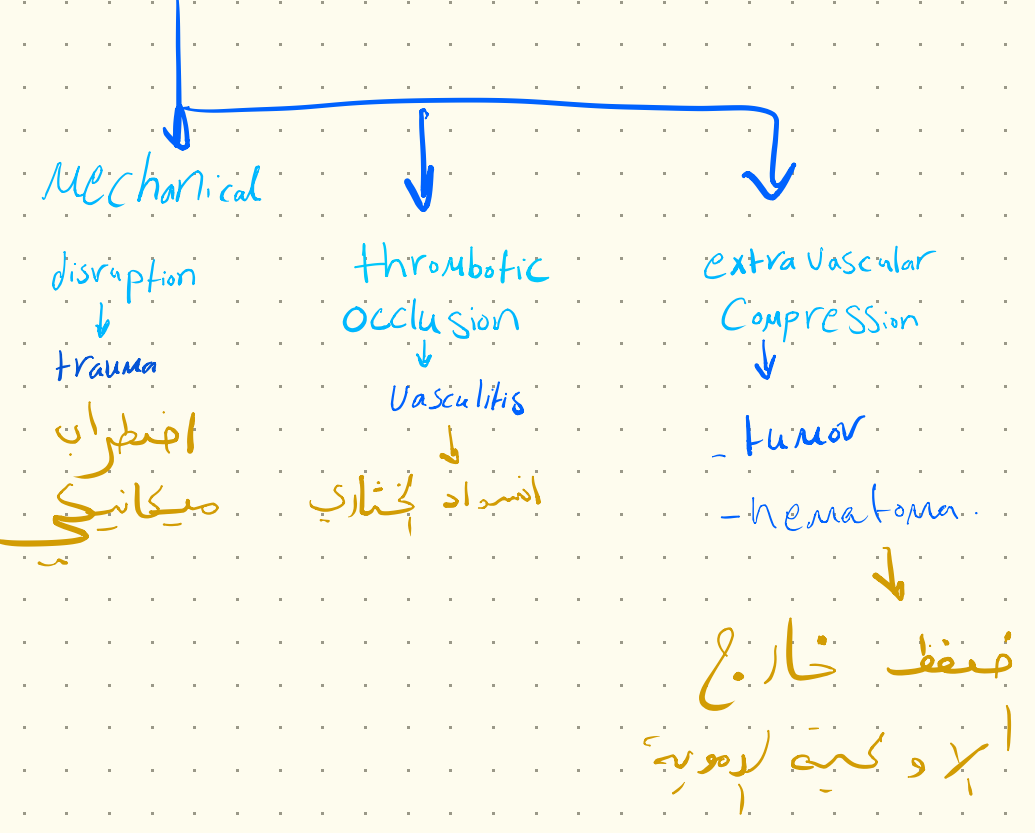 Mechanical
disruption
trauma
اضطراب
ميكانيكي
thrombotic
occlusion
vasculitis
انسداد تخثاري
extra vascular
Compression
- tumor
- hematoma.
ضغط خارج
الاوعية الدموية